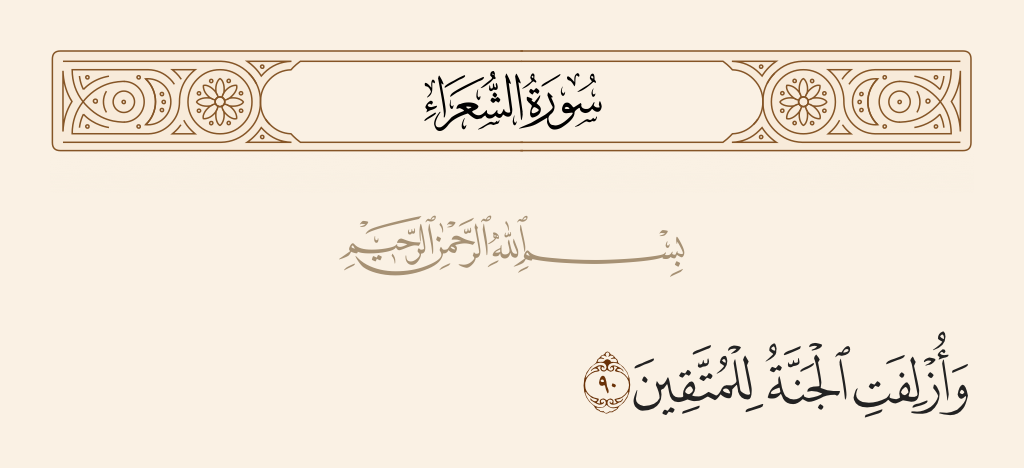 سُورَةُ الشُّعَرَاءِ
بِسْمِ ٱللَّهِ ٱلرَّحْمَٰنِ ٱلرَّحِيمِ
وَأُزْلِفَتِ ٱلْجَنَّةُ لِلْمُتَّقِينَ ٩٠